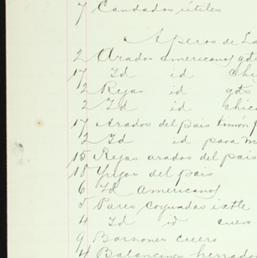 7 Candados útiles
Aperos de La
2 Arados americanos gds
17 Id id chi
2 Rejas id gds
2 Id id chic
17 Arados del pais timon
2 Id id para m
15 Rejas arados del pais
18 Yugos del pais
6 Id americanos
5 Pares coyundas ixtle
4 Id id cuero
9 Barsones cuero
4 Balancines herrados